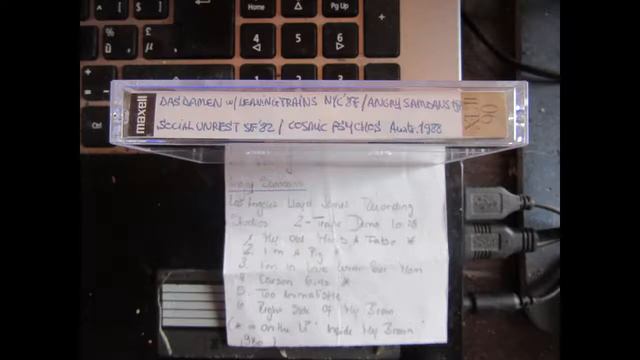 Home
Pg Up
4
5
6
+
Ctrl
maxell
DAS DAMEN W/ LEAVING TRAINS NYC '87 / ANGRY SAMOANS
SOCIAL UNREST SF '82 / COSMIC PSYCHOS Aust. 1988
90
Angry Samoans
Los Angeles Lloyd James Recording
Studios 2-Track Demo
1. My Old Man's A Fatso *
2. I'm A Pig
3. I'm in Love With Your Mom
4. Carson Girls *
5. Too Animalistic
6. Right Side Of My Brain
(* = on the LP "Inside My Brain"